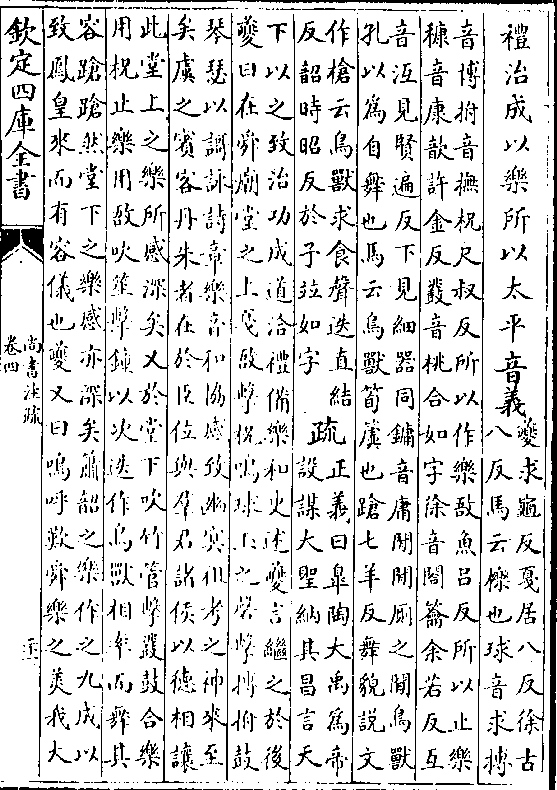 禮治成以樂所以太平音義
夔求龜反戛居八反徐古
八反馬云櫟也球音求搏
音博拊音撫柷尺叔反所以作樂敔魚呂反所以止樂
穅音康歆許金反鼗音桃合如字徐音閤籥余若反互
音沍見賢遍反下見細器同鏞音庸閒閒廁之閒鳥獸
孔以為自舞也馬云鳥獸筍簴也蹌七羊反舞貌說文
作槍云鳥獸求食聲迭直結
反韶時昭反於予竝如字
疏
正義曰臯陶大禹為帝
設謀大聖納其昌言天
下以之致治功成道洽禮備樂和史述夔言繼之於後
夔曰在舜廟堂之上戛敔擊柷鳴球玉之磬擊搏拊鼓
琴瑟以調詠詩章樂音和協感致幽冥祖考之神來至
矣虞之賓客丹朱者在於臣位與羣君諸侯以德相讓
此堂上之樂所感深矣又於堂下吹竹管擊鼗鼓合樂
用柷止樂用敔吹笙擊鐘以次迭作鳥獸相率而舞其
容蹌蹌然堂下之樂感亦深矣簫韶之樂作之九成以
致鳳皇來而有容儀也夔又曰嗚呼歎舜樂之美我大
欽定四庫全書
尚書注疏
卷四